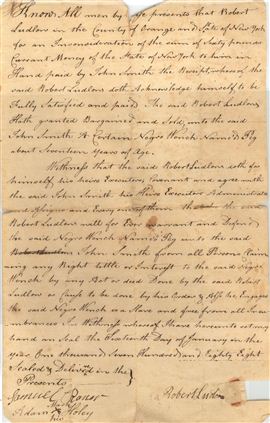 Know All men by These presents that Robert
Ludlow in the County of Orange and State of New York
for an Inconsideration of the sum of Sixty pounds
Currant Money of the State of New York to him in
Hand paid by John Smith the Receipt whereof the
said Robert Ludlow doth Acknowledge himself to be
Fully Satisfied and paid The said Robert Ludlow
Hath granted Bargained and Sold unto the said
John Smith A Certain Negro Wench Named
about Seventeen years of Age
Witnesseth that the said Robert Ludlow doth for
himself his heirs Executors Covenant and agree with
the said John Smith his Heirs Executor Administrator
and Assigns and Every of them that the said
Robert Ludlow will for Ever warrant and Defend
the said Negro Wench Named unto the said
John Smith from all Persons Claim
ing any Right title or Interest to the said Negro
Wench by any Act or deed Done by the said Robert
Ludlow or Caused to be done by his Order & Also he Engages
the said Negro Wench as a Slave and free from all In
cumbrances In Wittness whereof I have hereunto set my
hand an Seal the Day of January in the
year One thousand Seven Hundred and Eighty Eight
Sealed & Deliv'd in the
Presents
Samuel
his
Adam Holey
Robert Ludlow